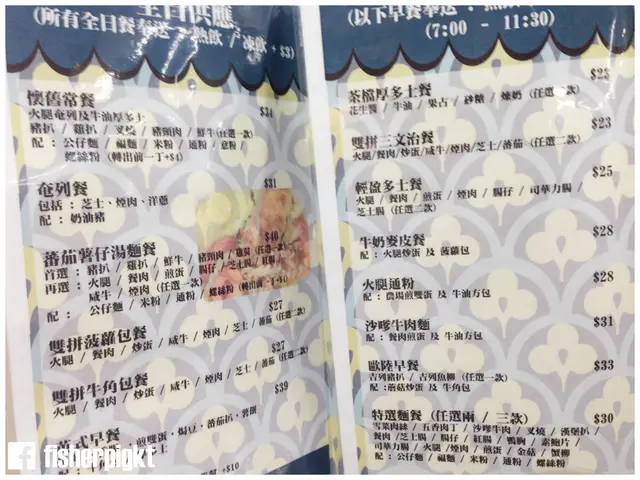 全日供應
(所有全日餐奉送：熱飲 / 凍飲 + $3)
懷舊常餐 $34
火腿奄列及牛油厚多士
豬扒 / 雞扒 / 叉燒 / 豬頸肉 / 鮮牛 (任選一款)
配： 公仔麵 / 福麵 / 米粉 / 通粉 / 意粉 /
螺絲粉 (轉出前一丁+$4)
奄列餐 $31
包括：芝士、煙肉、洋蔥
配：奶油豬
蕃茄薯仔湯麵餐 $40
首選：豬扒 / 雞扒 / 鮮牛 / 豬頸肉 / 雞翼 (任選一款)
再選：火腿 / 餐肉 / 煎蛋 / 腸仔 / 芝士腸 / 紅腸 /
咸牛 / 煙肉 (任選一款)
配： 公仔麵 / 米粉 / 通粉 / 螺絲粉 (轉出前一丁+$4)
雙拼菠蘿包餐 $27
火腿 / 餐肉 / 炒蛋 / 咸牛 / 煙肉 / 芝士 / 蕃茄 (任選二款)
雙拼牛角包餐 $27
火腿 / 餐肉 / 炒蛋 / 咸牛 / 煙肉 / 芝士 / 蕃茄 (任選二款)
英式早餐 $39
煎雙蛋、焗豆、蕃茄扒、薯餅
+$10
(以下早餐奉送：熱飲
(7:00 - 11:30)
茶檔厚多士餐 $23
花生醬 / 牛油 / 果占 / 砂糖 / 煉奶 (任選二款)
雙拼三文治餐 $23
火腿/餐肉/炒蛋/咸牛/煙肉/芝士/蕃茄 (任選二款)
輕盈多士餐 $25
火腿 / 餐肉 / 煎蛋 / 煙肉 / 腸仔 / 司華力腸 /
芝士腸 (任選二款)
牛奶麥皮餐 $28
配：火腿炒蛋 及 菠蘿包
火腿通粉 $28
配：農場煎雙蛋 及 牛油方包
沙嗲牛肉麵 $31
配：餐肉煎蛋 及 牛油方包
歐陸早餐 $33
吉列豬扒 / 吉列魚柳 (任選一款)
配：蘑菇炒蛋 及 牛角包
特選麵餐 (任選兩 / 三款) $30
雪菜肉絲 / 五香肉丁 / 沙嗲牛肉 / 叉燒 / 漢堡扒 /
餐肉 / 芝士腸 / 腸仔 / 紅腸 / 鴨胸 / 素鮑片 /
司華力腸 / 火腿 / 煙肉 / 煎蛋 / 金菇 / 蟹柳
配： 公仔麵 / 福麵 / 米粉 / 通粉 / 螺絲粉
fisherpigkt